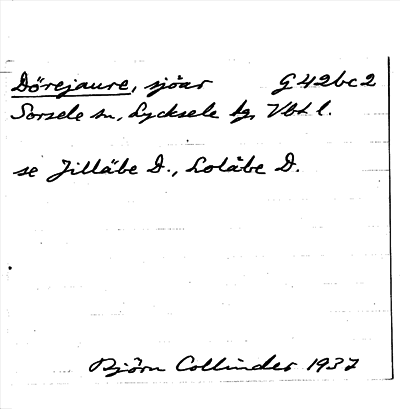 Dörejaure, sjöar G 42bc2
Sorsele sn, Lycksele lg, Vbt l.
se Jilläbe D., Loläbe D.
Björn Collinder 1937